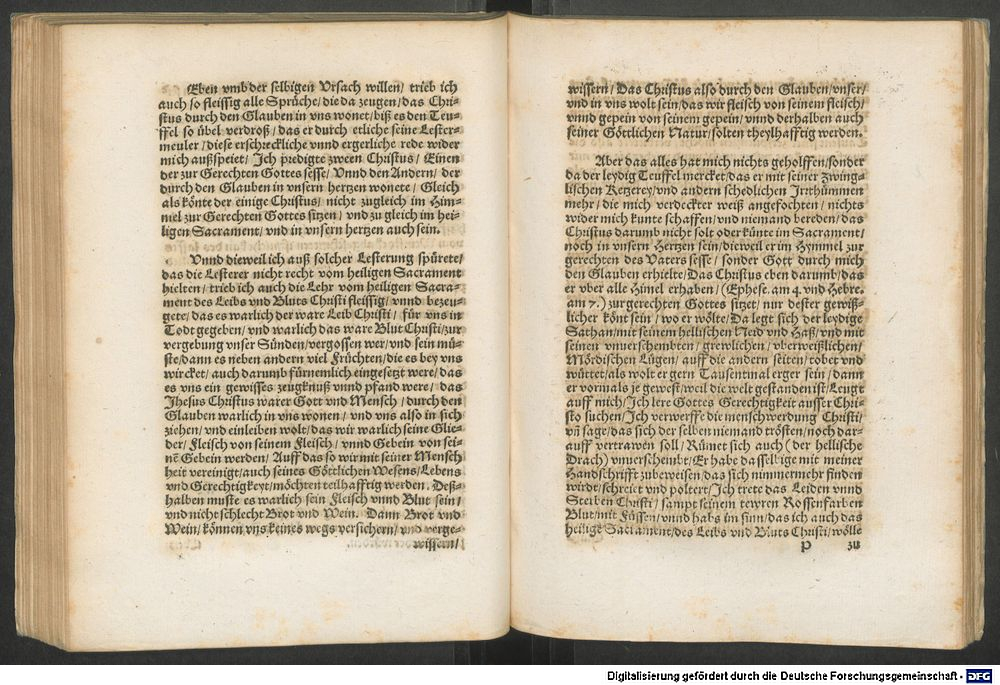 Eben vmb der selbigen Vrsach willen/ trieb ich
auch so fleissig alle Sprüche/ die da zeugen/ das Chri-
stus durch den Glauben in vns wonet/ biß es den Teu-
ffel so übel verdroß/ das er durch etliche seine Lester-
meuler/ diese erschreckliche vnnd ergerliche rede wider
mich außspeiet/ Ich predigte zween Christus/ Einen
der zur Gerechten Gottes sesse/ Vnnd den Andern/ der
durch den Glauben in vnsern hertzen wonete/ Gleich
als könte der einige Christus/ nicht zugleich im Him-
mel zur Gerechten Gottes sitzen/ vnd zu gleich im hei-
ligen Sacrament/ vnd in vnsern hertzen auch sein.
Vnnd dieweil ich auß solcher Lesterung spürete/
das die Lesterer nicht recht vom heiligen Sacrament
hielten/ trieb ich auch die Lehr vom heiligen Sacra-
ment des Leibs vnd Bluts Christi fleissig/ vnnd bezeu-
gete/ das es warlich der ware Leib Christi/ für vns in
Todt gegeben/ vnd warlich das ware Blut Christi/ zur
vergebung vnser Sünden/ vergossen wer/ vnd sein mü-
ste/ dann es neben andern viel Früchten/ die es bey vns
wircket/ auch darumb fürnemlich eingesetzt were/ das
es vns ein gewisses zeugknuß vnnd pfand were/ das
Jhesus Christus warer Gott vnd Mensch/ durch den
Glauben warlich in vns wonen/ vnd vns also in sich
ziehen/ vnd einleiben wolt/ das wir warlich seine Glie-
der/ Fleisch von seinem Fleisch/ vnnd Gebein von sei-
nē Gebein werden/ Auff das so wir mit seiner Mensch
heit vereinigt/ auch seines Göttlichen Wesens/ Lebens
vnd Gerechtigkeyt/ möchten teilhafftig werden. Deß-
halben muste es warlich sein Fleisch vnnd Blut sein/
vnd nicht schlecht Brot vnd Wein. Dann Brot vnd
Wein/ können vns keines wegs versichern/ vnd verge-
wissern/
wissern/ Das Christus also durch den Glauben/ vnser/
vnd in vns wolt sein/ das wir fleisch von seinem fleisch/
vnnd gepein von seinem gepein/ vnnd derhalben auch
seiner Göttlichen Natur/ solten theylhafftig werden.
Aber das alles hat mich nichts geholffen/ sonder
da der leydig Teuffel mercket/ das er mit seiner Zwing-
lischen Ketzerey/ vnd andern schedlichen Irrthümmen
mehr/ die mich verdeckter weiß angefochten/ nichts
wider mich kunte schaffen/ vnd niemand bereden/ das
Christus darumb nicht solt oder künte im Sacrament/
noch in vnsern Hertzen sein/ dieweil er im Hymmel zur
gerechten des Vaters sesse/ sonder Gott durch mich
den Glauben erhielte/ Das Christus eben darumb/ das
er vber alle Himel erhaben/ (Ephese. am 4. vnd Hebre.
am 7.) zur gerechten Gottes sitzet/ nur dester gewiß-
licher könt sein/ wo er wölte/ Da legt sich der leydige
Sathan/ mit seinem hellischen Neid vnd Haß/ vnd mit
seinen vnuerschembten/ grewlichen/ vberweißlichen/
Mördischen Lügen/ auff die andern seiten/ tobet vnd
wüttet/ als wolt er gern Tausentmal erger sein/ dann
er vormals je gewest/ weil die welt gestanden ist/ Leugt
auff mich/ Ich lere Gottes Gerechtigkeit ausser Chri-
sto suchen/ Ich verwerffe die menschwerdung Christi/
vñ sage/ das sich der selben niemand trösten/ noch dar-
auff vertrawen soll/ Rümet sich auch (der hellische
Drach) vnuerscheimbt/ Er habe dasselbige mit meiner
Handschrifft zubeweisen/ das sich nimmermehr finden
wirdt/ schreiet vnd poltert/ Ich trete das Leiden vnnd
Sterben Christi/ sampt seinem tewren Rossenfarben
Blut/ mit Füssen/ vnnd habs im sinn/ das ich auch das
heilige Sacrament/ des Leibs vnd Bluts Christi/ wölle
P zu
Digitalisierung gefördert durch die Deutsche Forschungsgemeinschaft - DFG